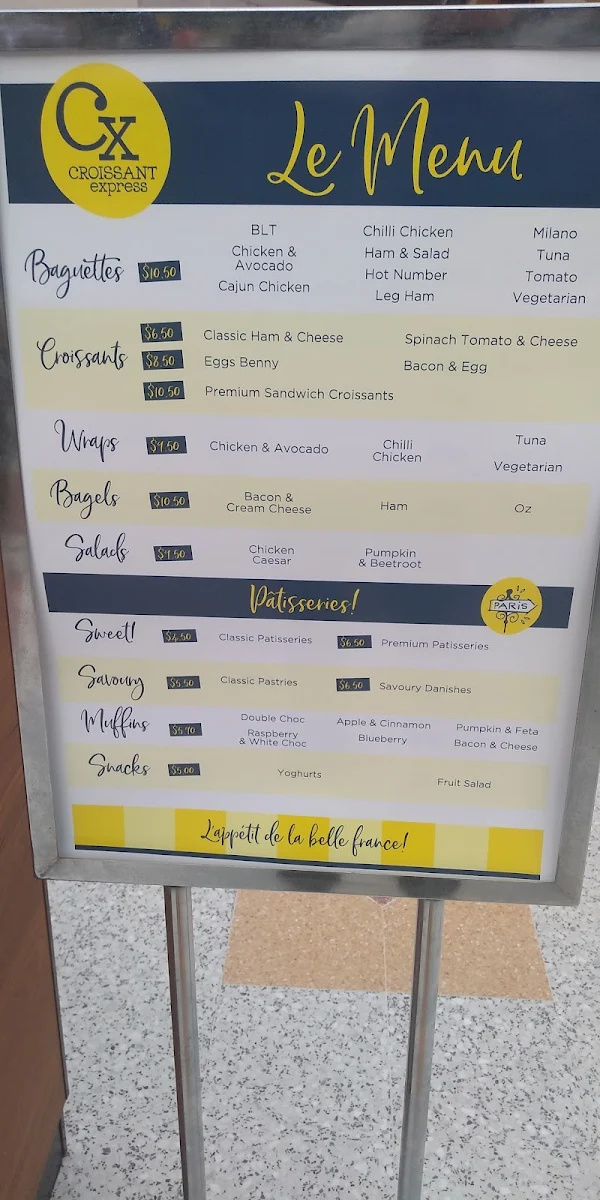 Cx
CROISSANT
express
Le Menu
Baguettes $10.50
BLT
Chicken &
Avocado
Cajun Chicken
Chilli Chicken
Ham & Salad
Hot Number
Leg Ham
Milano
Tuna
Tomato
Vegetarian
Croissants
$6.50 Classic Ham & Cheese Spinach Tomato & Cheese
$8.50 Eggs Benny Bacon & Egg
$10.50 Premium Sandwich Croissants
Wraps $9.50
Chicken & Avocado
Chilli
Chicken
Tuna
Vegetarian
Bagels $10.50
Bacon &
Cream Cheese
Ham
Oz
Salads $9.50
Chicken
Caesar
Pumpkin
& Beetroot
Pâtisseries!
PARIS
Sweet! $4.50 Classic Patisseries $6.50 Premium Patisseries
Savoury $5.50 Classic Pastries $6.50 Savoury Danishes
Muffins $5.70
Double Choc
Raspberry
& White Choc
Apple & Cinnamon
Blueberry
Pumpkin & Feta
Bacon & Cheese
Snacks $5.00 Yoghurts Fruit Salad
L'appétit de la belle france!